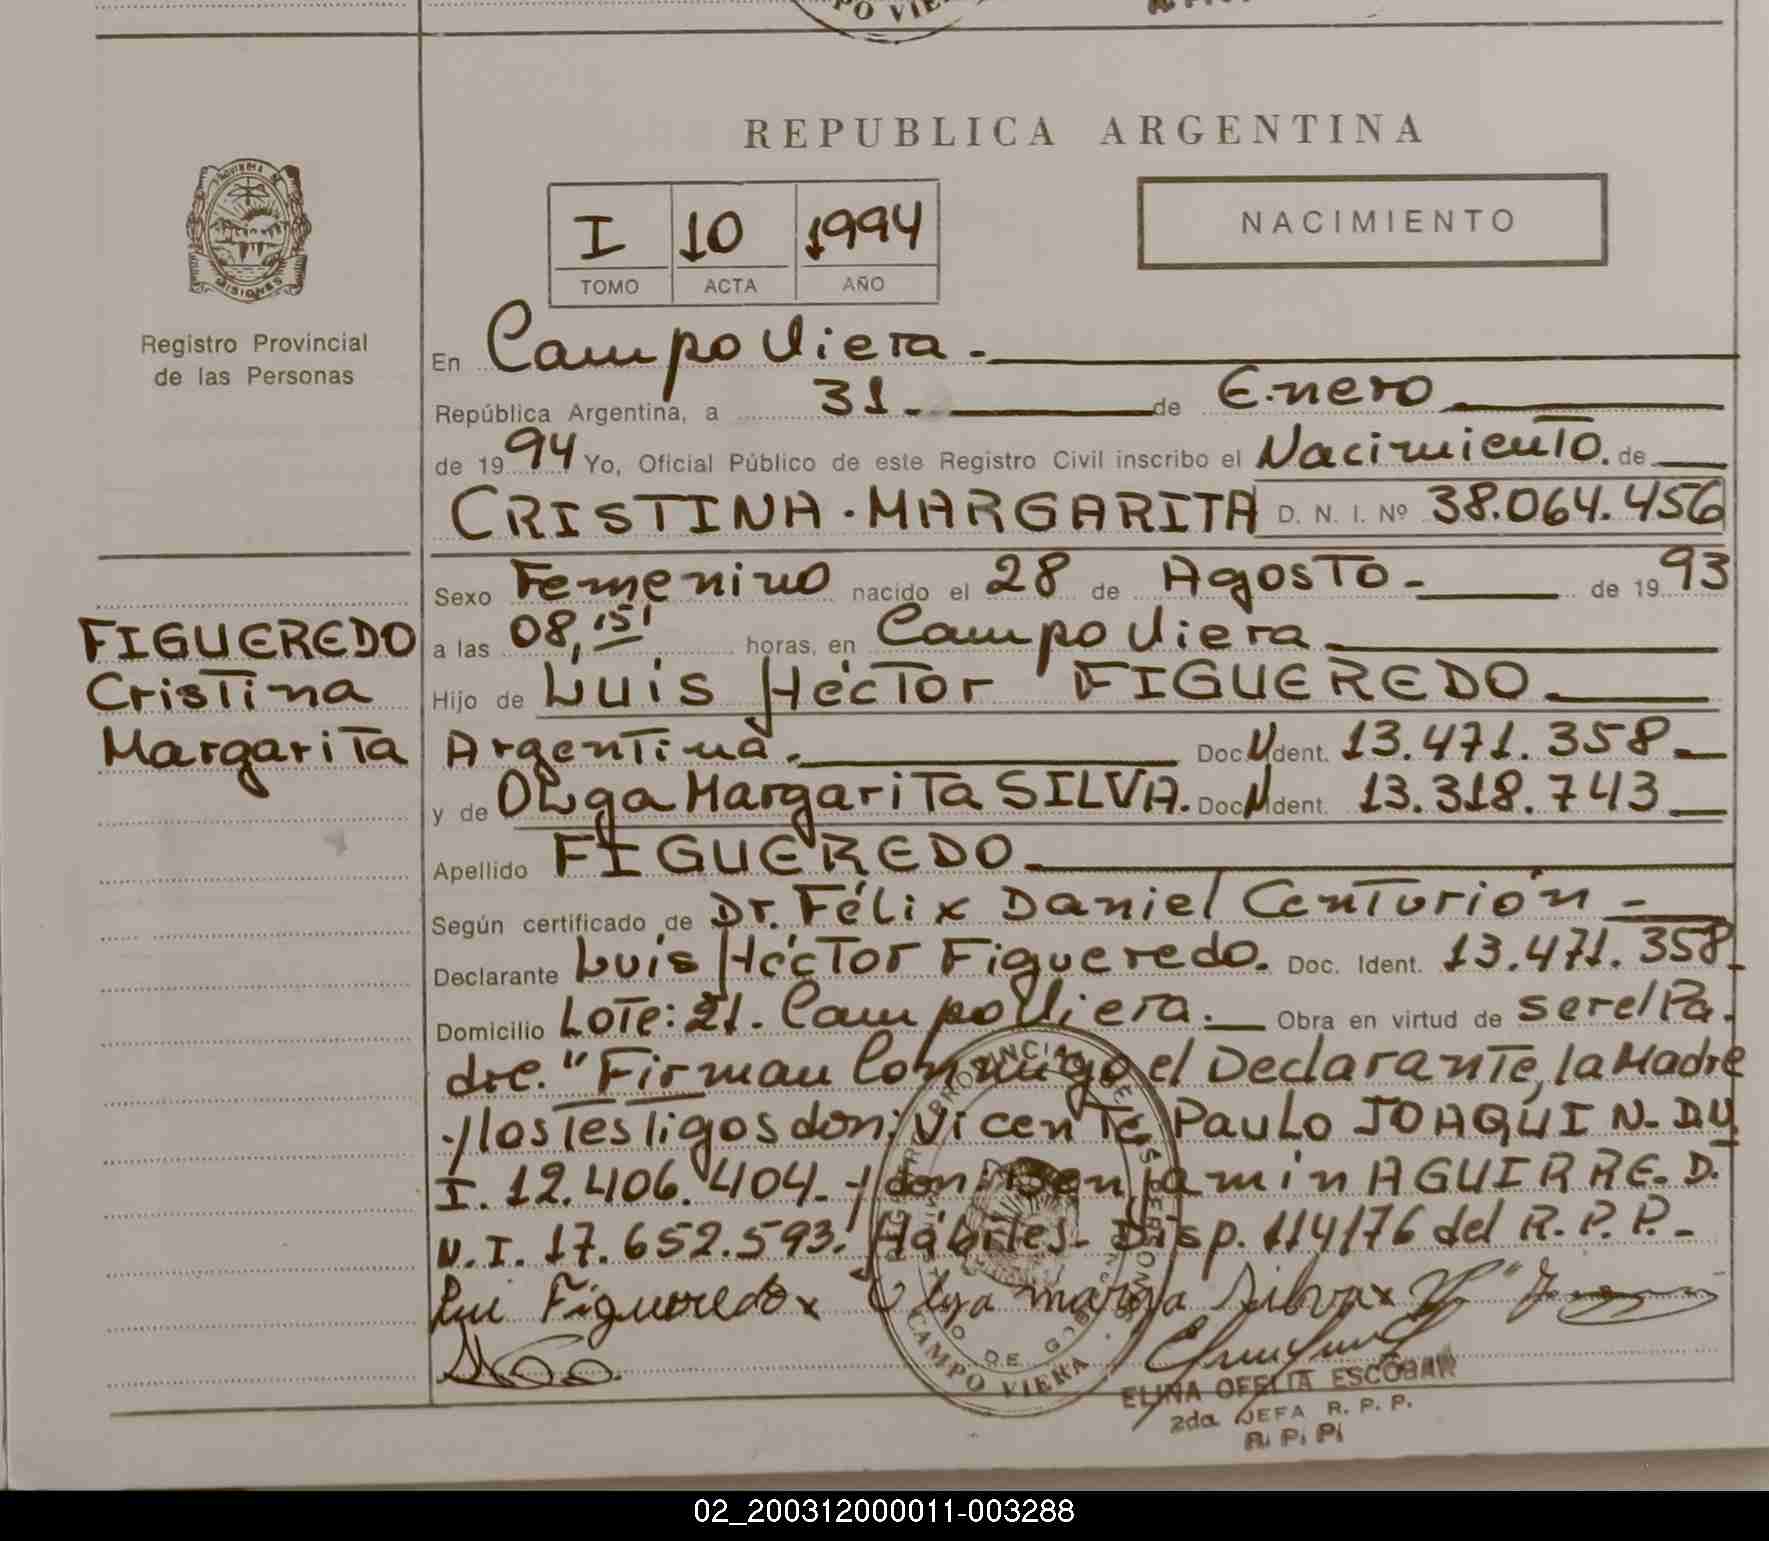 PO VIE
REPUBLICA ARGENTINA
PROVINCIA DE
MISIONES
I 10 1994
TOMO ACTA AÑO
NACIMIENTO
Registro Provincial
de las Personas
En Campo Viera.-
República Argentina, a 31.- de Enero
de 1994 Yo, Oficial Público de este Registro Civil inscribo el Nacimiento. de
CRISTINA. MARGARITA D. N. I. Nº 38.064.456
Sexo Femenino nacido el 28 de Agosto - de 1993
FIGUEREDO
Cristina
Margarita
a las 08,15' horas, en Campo Viera
Hijo de Luis Héctor FIGUEREDO.
Argentina. Doc. Ident. 13.471.358-
y de OLga Margarita SILVA. Doc. Ident. 13.318.743
Apellido FIGUEREDO.
Según certificado de Dr. Félix Daniel Centurión -
Declarante Luis Héctor Figueredo. Doc. Ident. 13.471.358.
Domicilio Lote: 21. Campo Viera. Obra en virtud de ser el Pa.
dre. "Firman Conmigo el Declarante, la Madre
y los Testigos don: Vicente PauLo JOAQUIN- D.N
I. 12.406.404.- y don: Benjamin AGUIRRE. D.
N.I. 17.652.593. Hábiles- Disp. 114/76 del R.P.P.-
Lui Figueredo x Olga marga Silva x
CAMPO VIERA
ELINA OFELIA ESCOBAR
2da JEFA R. P. P.
R. P. P.
02_200312000011-003288